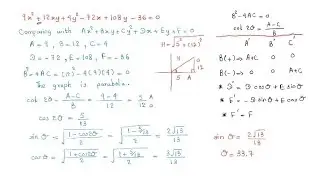 9x² + 12xy + 4y² - 72x + 108y - 36 = 0
Comparing with Ax² + Bxy + Cy² + Dx + Ey + F = 0
A = 9, B = 12, C = 4
D = -72, E = 108, F = -36
B² - 4AC = (12)² - 4(9)(4) = 0
The graph is parabola.
cot 2θ = A-C/B = 9-4/12 = 5/12 A/O
cos 2θ = 5/13
sin θ = √1-cos2θ/2 = √1-5/13/2 = 2√13/13
cos θ = √1+cos2θ/2 = √1+5/13/2 = 3√13/13
5 12
B² - 4AC = 0
cot 2θ = A-C/B
A' B' C'
B(+) → A+C 0 0
B(-) → 0 0 A+C
* D' = D cos θ + E sin θ
* E' = -D sin θ + E cos θ
* F' = F
sin θ = 2√13/13
θ = 33.7